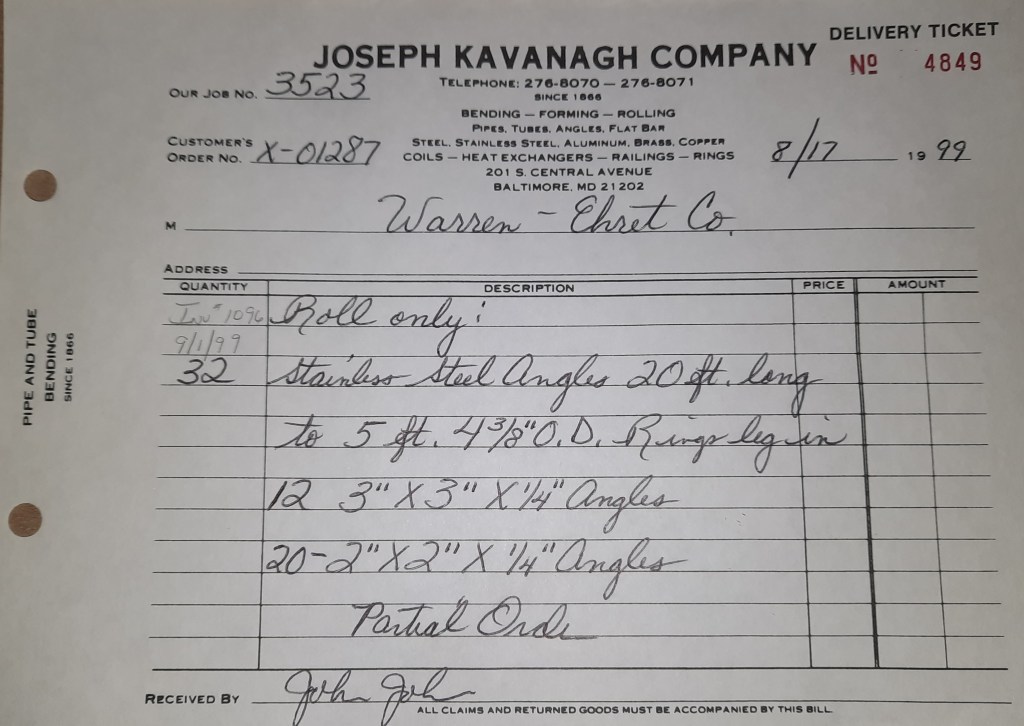 DELIVERY TICKET
JOSEPH KAVANAGH COMPANY
Nº 4849
TELEPHONE: 276-8070 — 276-8071
SINCE 1866
OUR JOB NO. 3523
BENDING — FORMING — ROLLING
PIPES, TUBES, ANGLES, FLAT BAR
CUSTOMER'S
ORDER NO. X-01287
STEEL, STAINLESS STEEL, ALUMINUM, BRASS, COPPER
COILS — HEAT EXCHANGERS — RAILINGS — RINGS
8/17 1999
201 S. CENTRAL AVENUE
BALTIMORE, MD 21202
M Warren - Ehret Co.
ADDRESS
QUANTITY DESCRIPTION PRICE AMOUNT
Inv# 1096 Roll only:
9/1/99
32 Stainless Steel Angles 20 ft. long
to 5 ft. 4 3/8" O.D. Rings leg in
12 3" X 3" X 1/4" Angles
20 - 2" X 2" X 1/4" Angles
Partial Order
RECEIVED BY John
ALL CLAIMS AND RETURNED GOODS MUST BE ACCOMPANIED BY THIS BILL
PIPE AND TUBE
BENDING
SINCE 1866